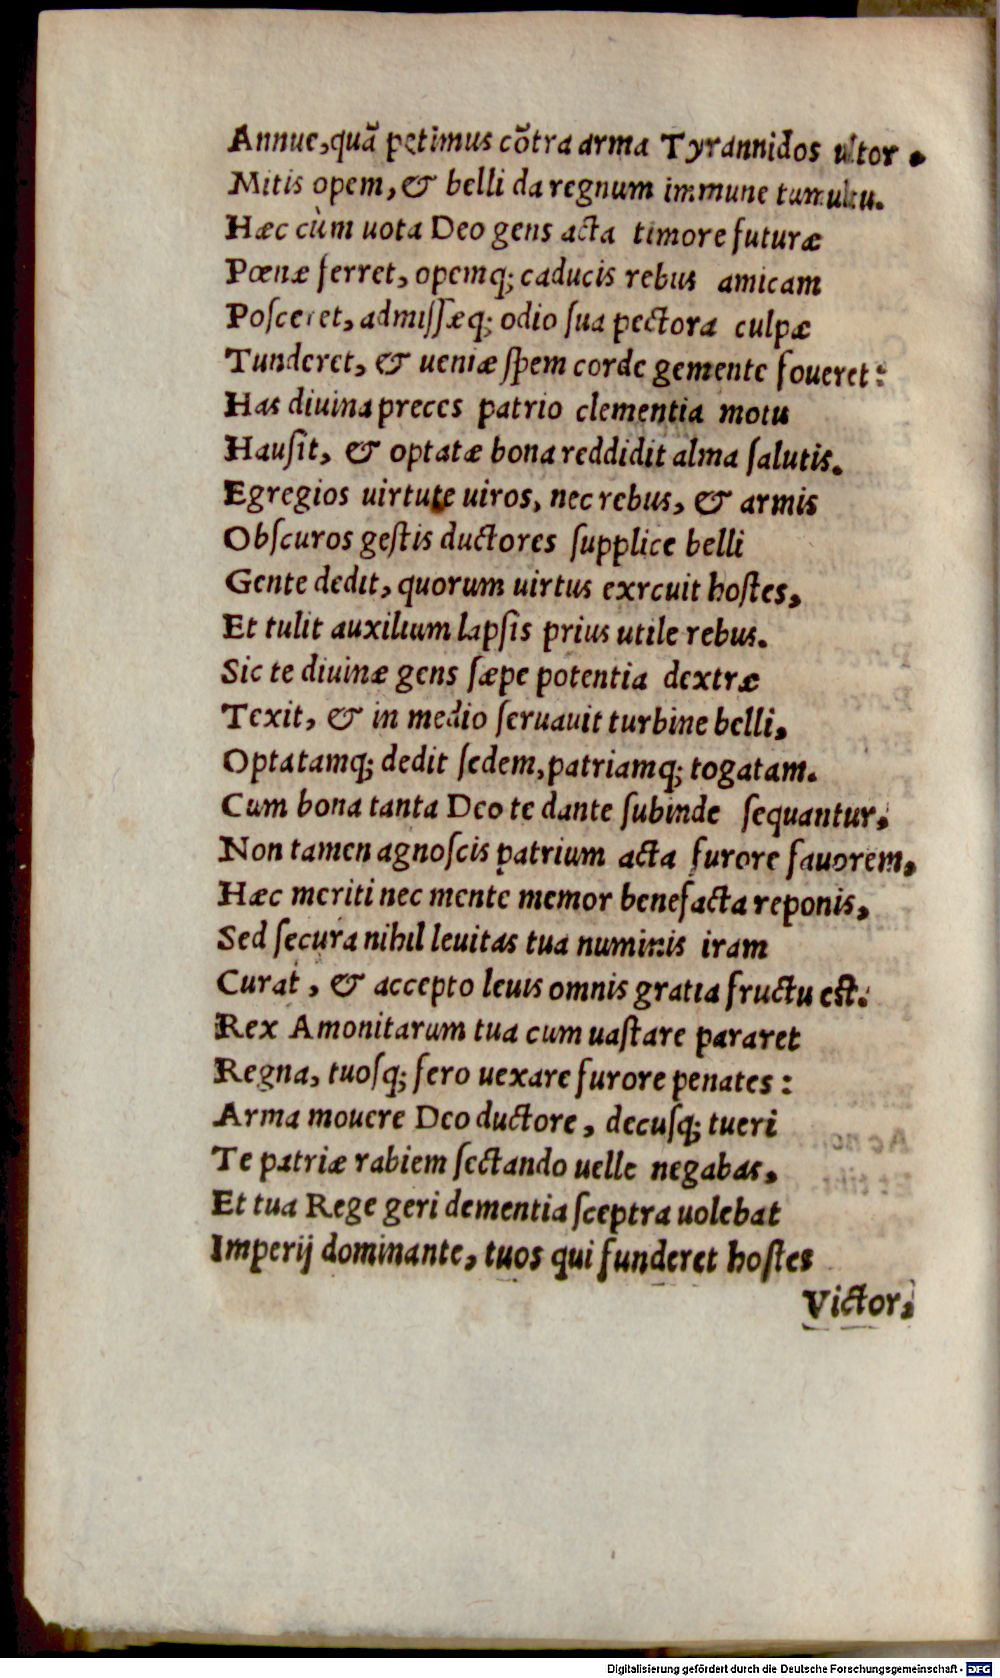 Annue, quā petimus cōtra arma Tyrannidos ultor.
Mitis opem, & belli da regnum immune tumultu.
Hæc cùm uota Deo gens acta timore futuræ
Pœnæ ferret, opemq; caducis rebus amicam
Posceret, admissæq; odio sua pectora culpæ
Tunderet, & ueniæ spem corde gemente foueret:
Has diuina preces patrio clementia motu
Hausit, & optatæ bona reddidit alma salutis.
Egregios uirtute uiros, nec rebus, & armis
Obscuros gestis ductores supplice belli
Gente dedit, quorum uirtus exrcuit hostes,
Et tulit auxilium lapsis prius utile rebus.
Sic te diuinæ gens sæpe potentia dextræ
Texit, & in medio seruauit turbine belli,
Optatamq; dedit sedem, patriamq; togatam.
Cum bona tanta Deo te dante subinde sequantur,
Non tamen agnoscis patrium acta furore fauorem,
Hæc meriti nec mente memor benefacta reponis,
Sed secura nihil leuitas tua numinis iram
Curat, & accepto leuis omnis gratia fructu est.
Rex Amonitarum tua cum uastare pararet
Regna, tuosq; fero uexare furore penates:
Arma mouere Deo ductore, decusq; tueri
Te patriæ rabiem sectando uelle negabas,
Et tua Rege geri dementia sceptra uolebat
Imperij dominante, tuos qui funderet hostes
Victor,
Digitalisierung gefördert durch die Deutsche Forschungsgemeinschaft - DFG